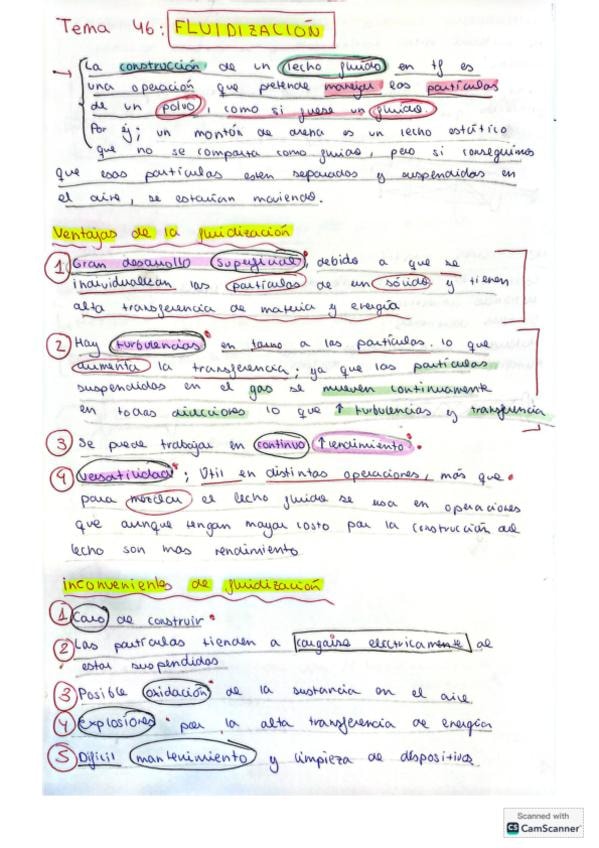 Tema 46: FLUIDIZACIÓN
La construcción de un lecho fluido en tf es
una operación que pretende manejar las partículas
de un polvo, como si fuese un fluido.
Por ej; un montón de arena es un lecho estático
que no se comporta como fluido, pero si conseguimos
que esas partículas esten separadas y suspendidas en
el aire, se estarían moviendo.
Ventajas de la fluidización
1 Gran desarrollo superficial, debido a que se
individualizan las partículas de un sólido y tienen
alta transferencia de materia y energía
2 Hay turbulencias en torno a las partículas. lo que
aumenta la transferencia; ya que las partículas
suspendidas en el gas se mueven continuamente
en todas direcciones lo que ↑ turbulencias y transferencia
3 Se puede trabajar en continuo ↑ rendimiento.
4 Versatilidad; Útil en distintas operaciones, más que
para mezclar el lecho fluido se usa en operaciones
que aunque tengan mayor costo por la construcción del
lecho son mas rendimiento
inconvenientes de fluidización
1 Caro de construir
2 Las partículas tienden a cargarse electricamente al
estar suspendidas
3 Posible oxidación de la sustancia en el aire
4 Explosiones por la alta transferencia de energía
5 Difícil mantenimiento y limpieza de dispositivos
Scanned with
CS CamScanner